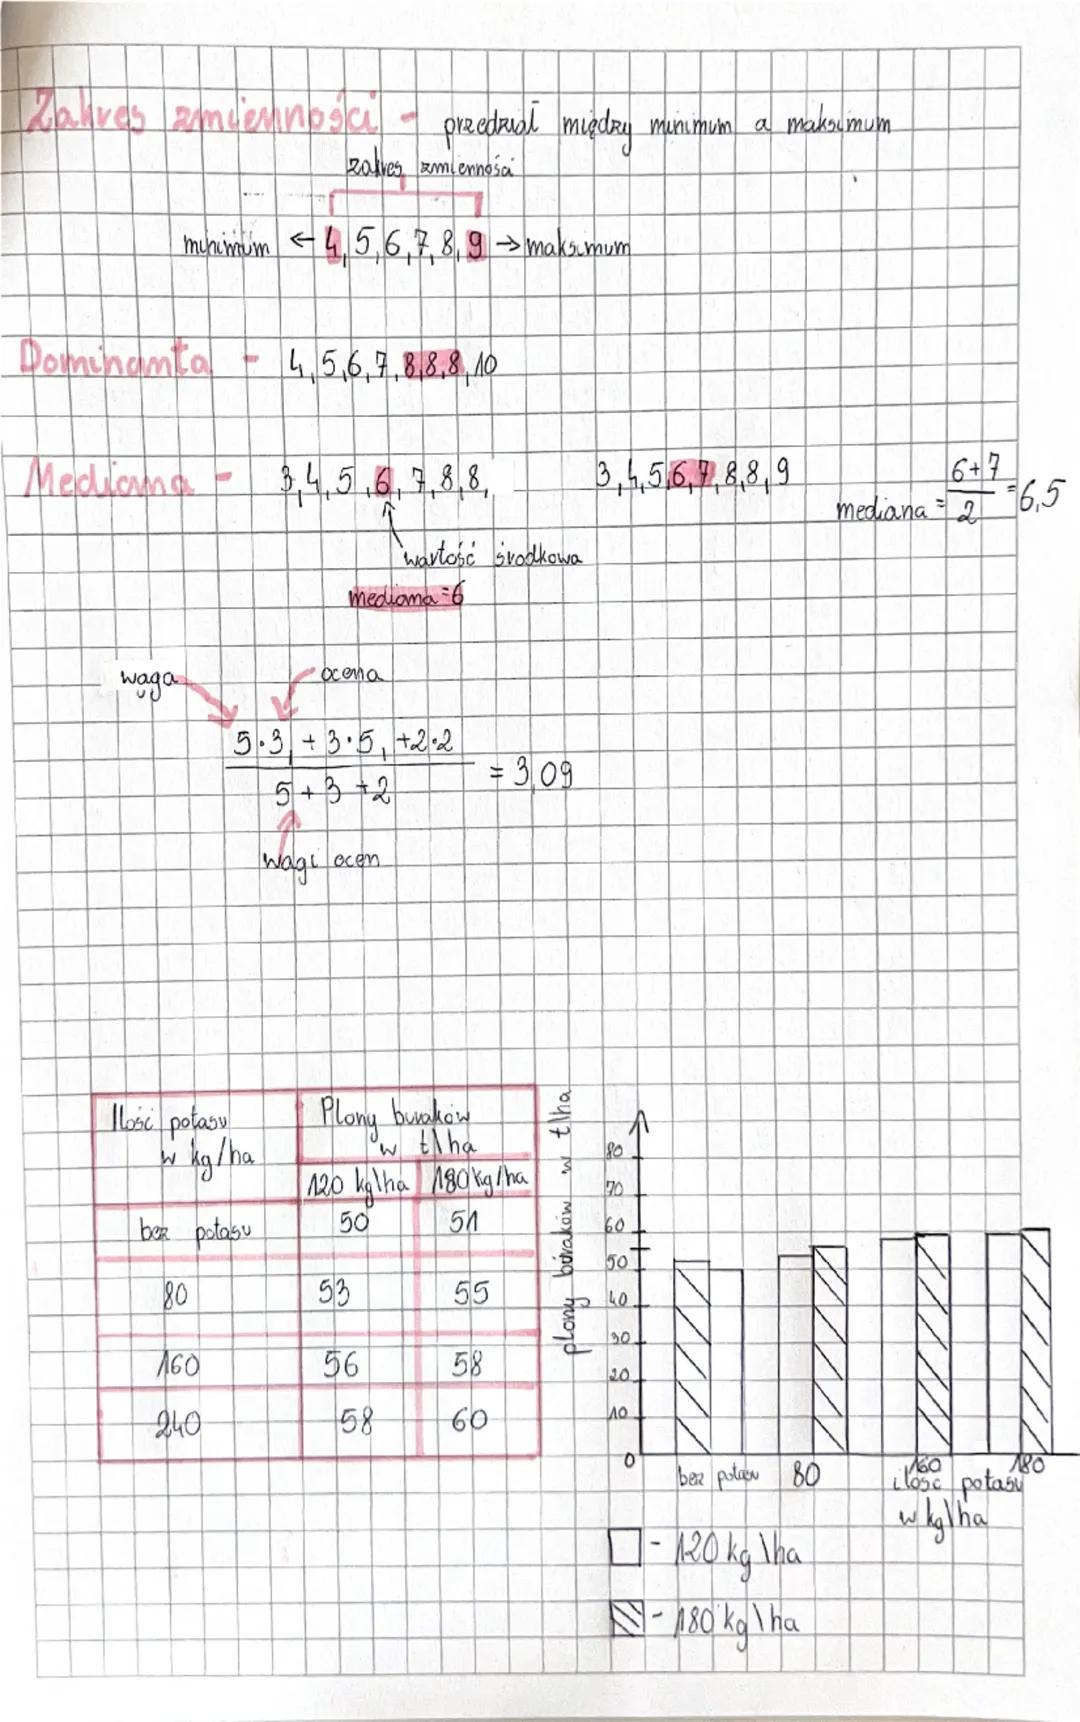 Zakres zmienności - przedział między minimum a maksimum
zakres zmienności
minimum ← 4, 5, 6, 7, 8, 9 → maksimum
Dominanta - 4, 5, 6, 7, 8, 8, 8, 10
Mediana - 3, 4, 5, 6, 7, 8, 8, 3, 4, 5, 6, 7, 8, 8, 9 mediana = 6+7 / 2 = 6,5
wartość środkowa
mediana = 6
waga ocena
5·3 + 3·5 + 2·2
5 + 3 + 2
= 3,09
wagi ocen
Ilość potasu
w kg/ha
Plony buraków
w t\ha
120 kg\ha 180 kg/ha
bez potasu 50 51
80 53 55
160 56 58
240 58 60
plony buraków w t\ha
80
70
60
50
40
30
20
10
0
bez potasu 80 160 180
ilość potasu
w kg\ha
- 120 kg\ha
- 180 kg\ha